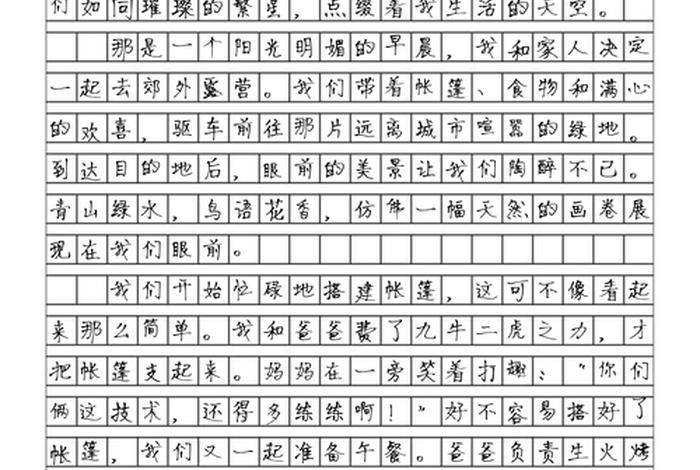 们如同璀璨的繁星，点缀着我生活的天空。
那是一个阳光明媚的早晨，我和家人决定
一起去郊外露营。我们带着帐篷、食物和满心
的欢喜，驱车前往那片远离城市喧嚣的绿地。
到达目的地后，眼前的美景让我们陶醉不已。
青山绿水，鸟语花香，仿佛一幅天然的画卷展
现在我们眼前。
我们开始忙碌地搭建帐篷，这可不像看起
来那么简单。我和爸爸费了九牛二虎之力，才
把帐篷支起来。妈妈在一旁笑着打趣：“你们
俩这技术，还得多练练啊！”好不容易搭好了
帐篷，我们又一起准备午餐。爸爸负责生火烤